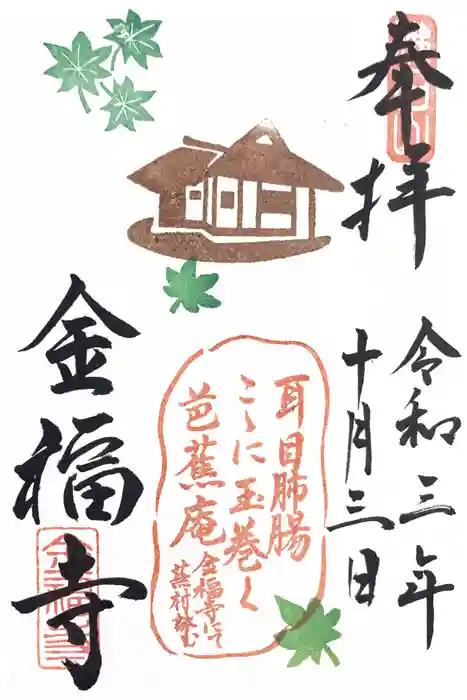 奉拝
令和三年
十月三日
耳目肺腸
こゝに玉巻く
芭蕉庵
金福寺にて
蕪村詠む
金福寺